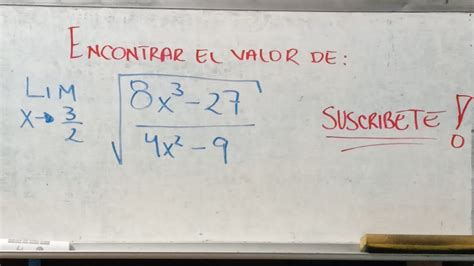 ENCONTRAR EL VALOR DE:
LIM x→3/2 √((8x³-27)/(4x²-9))
SUSCRIBETE !